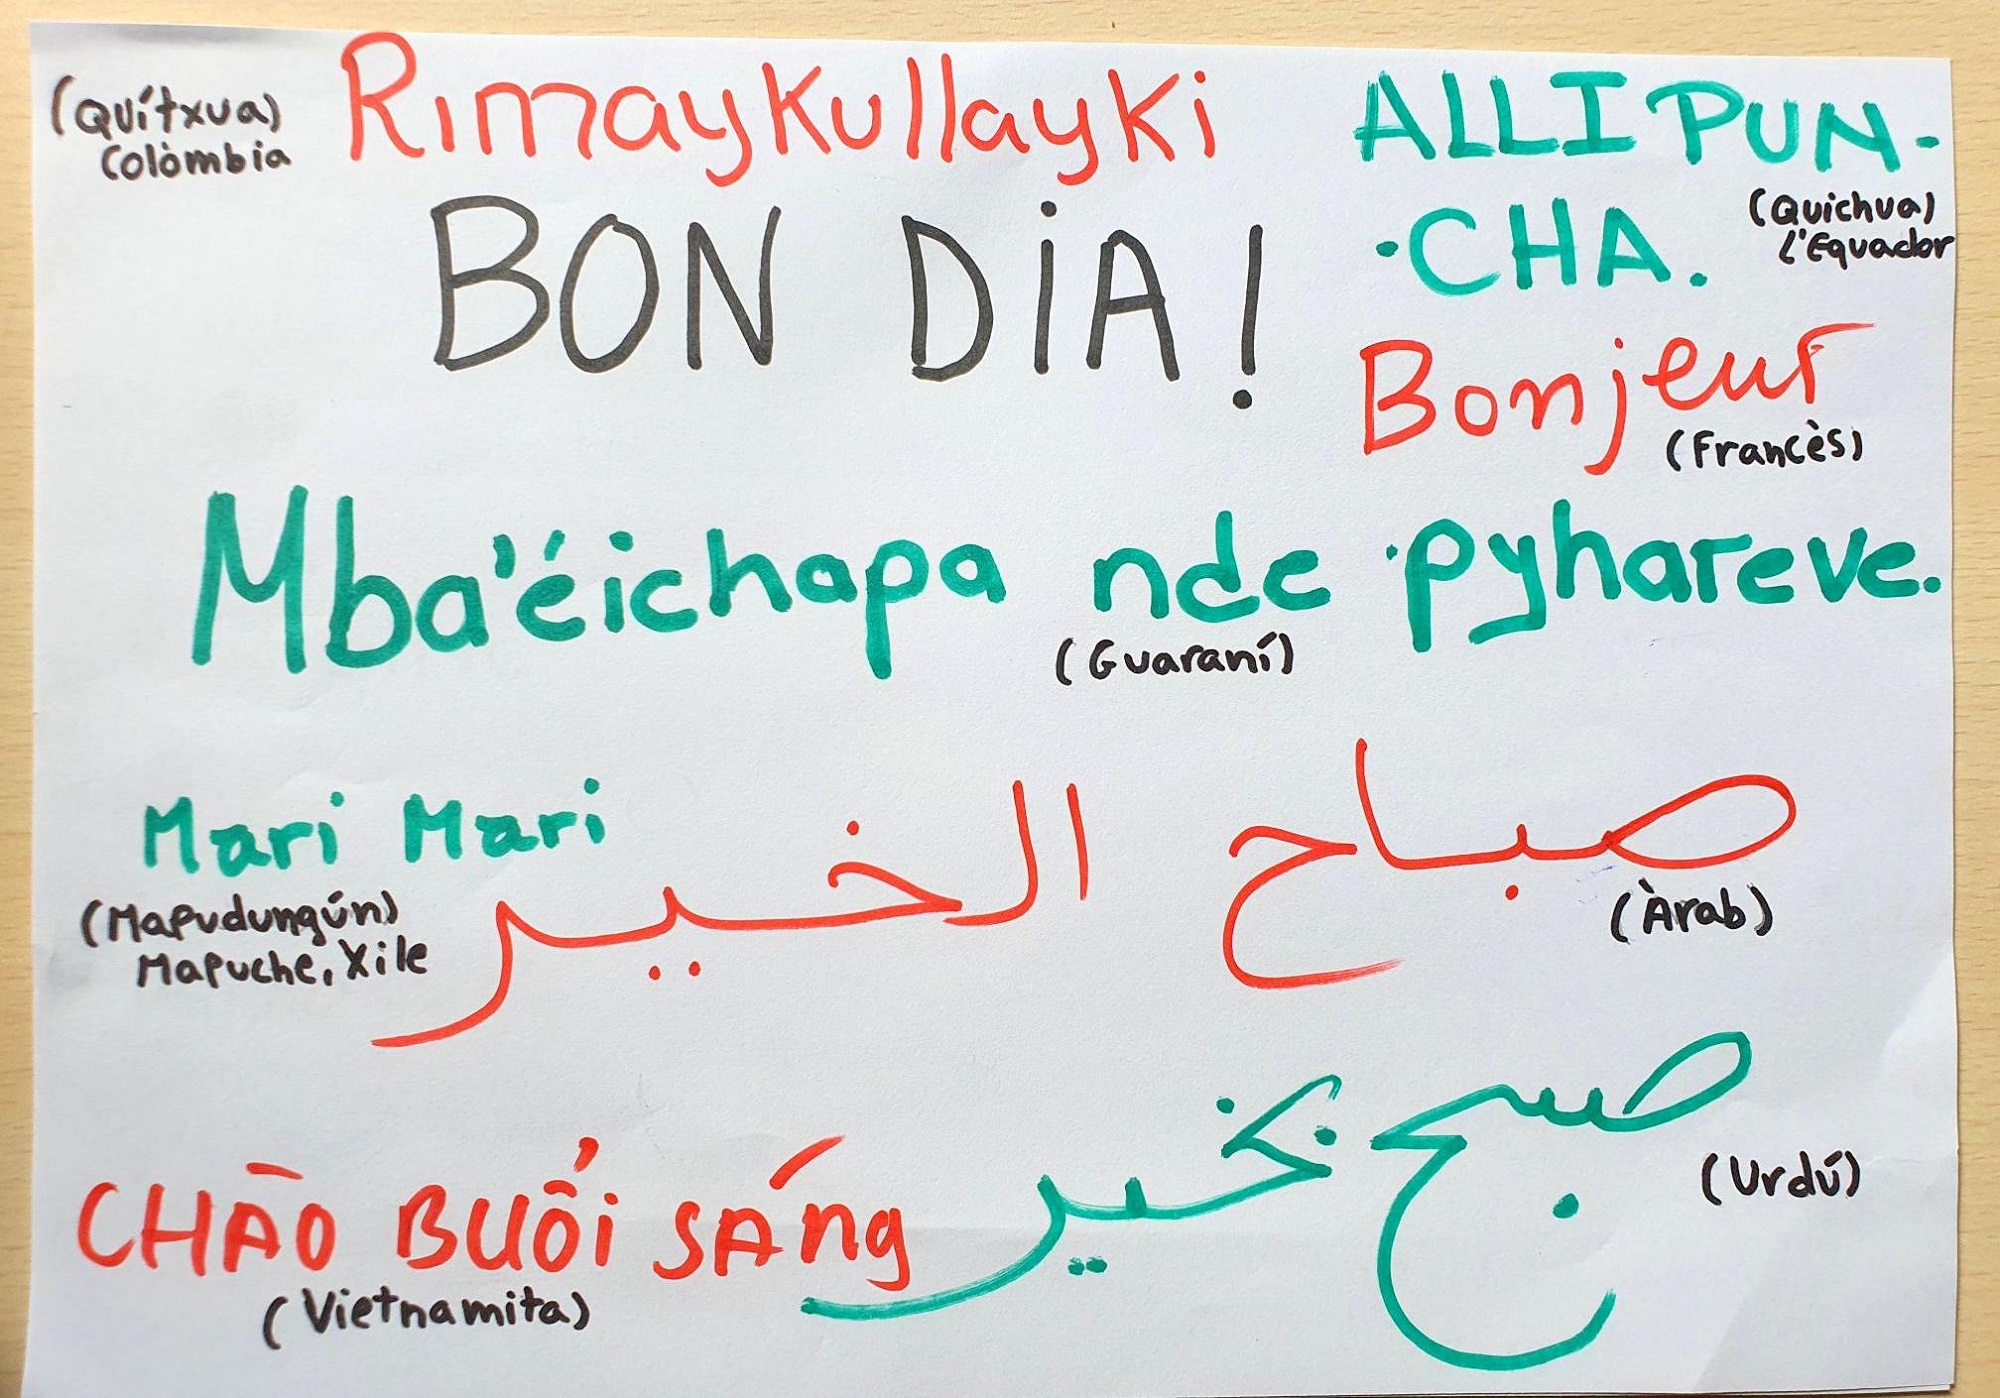 (Quítxua)
Colòmbia
Rimaykullayki
ALLI PUN-
-CHA.
(Quichua)
l'Equador
BON DIA!
Bonjeur
(Francès)
Mba'éichapa nde pyhareve.
(Guaraní)
Mari Mari
(Mapudungún)
Mapuche, Xile
صباح الخير
(Àrab)
صبح بخير
(Urdú)
CHÀO BUỔI SÁng
(Vietnamita)